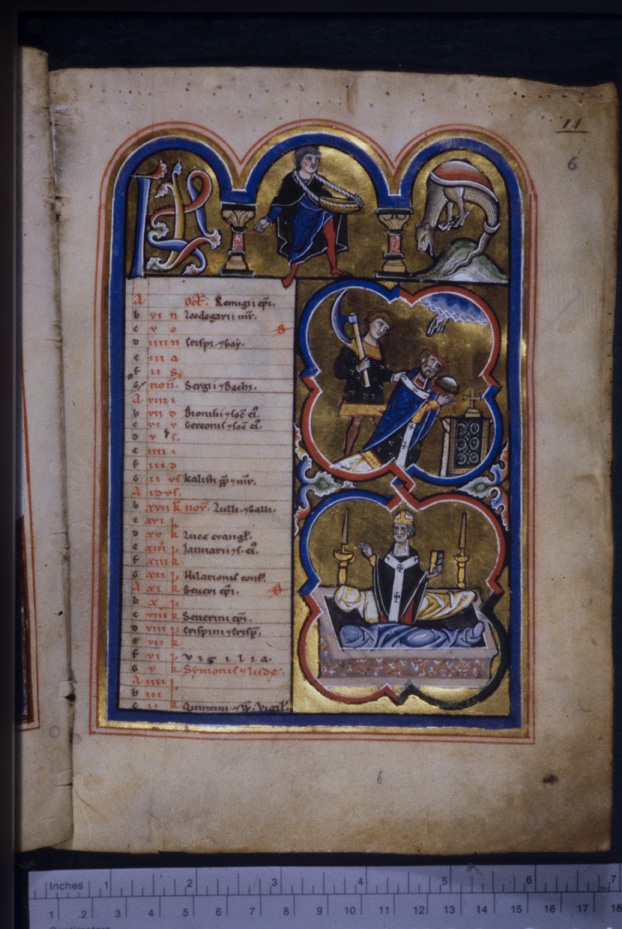 11
6
KL
A oct̄. Remigii ep̄i.
b vi n Leodegarii mr̄.
c v o
d iiii n Crispi ⁊ Gaȳ.
e iii a
f ii
G non̄. Sergii ⁊ Bachi.
A viii i
b vii d Dionisii ⁊ soc̄ ei᷒.
c vi v Gereonis ⁊ soc̄ ei᷒.
d v s.
e iiii i
f iii d
G ii vs kalisti p̄p̄ ⁊ mr̄.
A idvs.
b xvii k nov̄. Lulli ⁊ Galli.
c xvi
d xv k Luce evangl̄.
e xiiii Ianuarii ⁊ s. ei᷒.
f xiii k
G xii Hilarionis conf̄.
A xi k Severi ep̄i.
b x
c viiii k Severini ep̄i.
d viii Crispini ⁊ crisp̄.
e vii k
f vi vigilia
G v k Symonis ⁊ Iude.
A iiii
b iii
c ii k Quintini
6
Inches 1 2 3 4 5 6 7
1 2 3 4 5 6 7 8 9 10 11 12 13 14 15 16 17 18